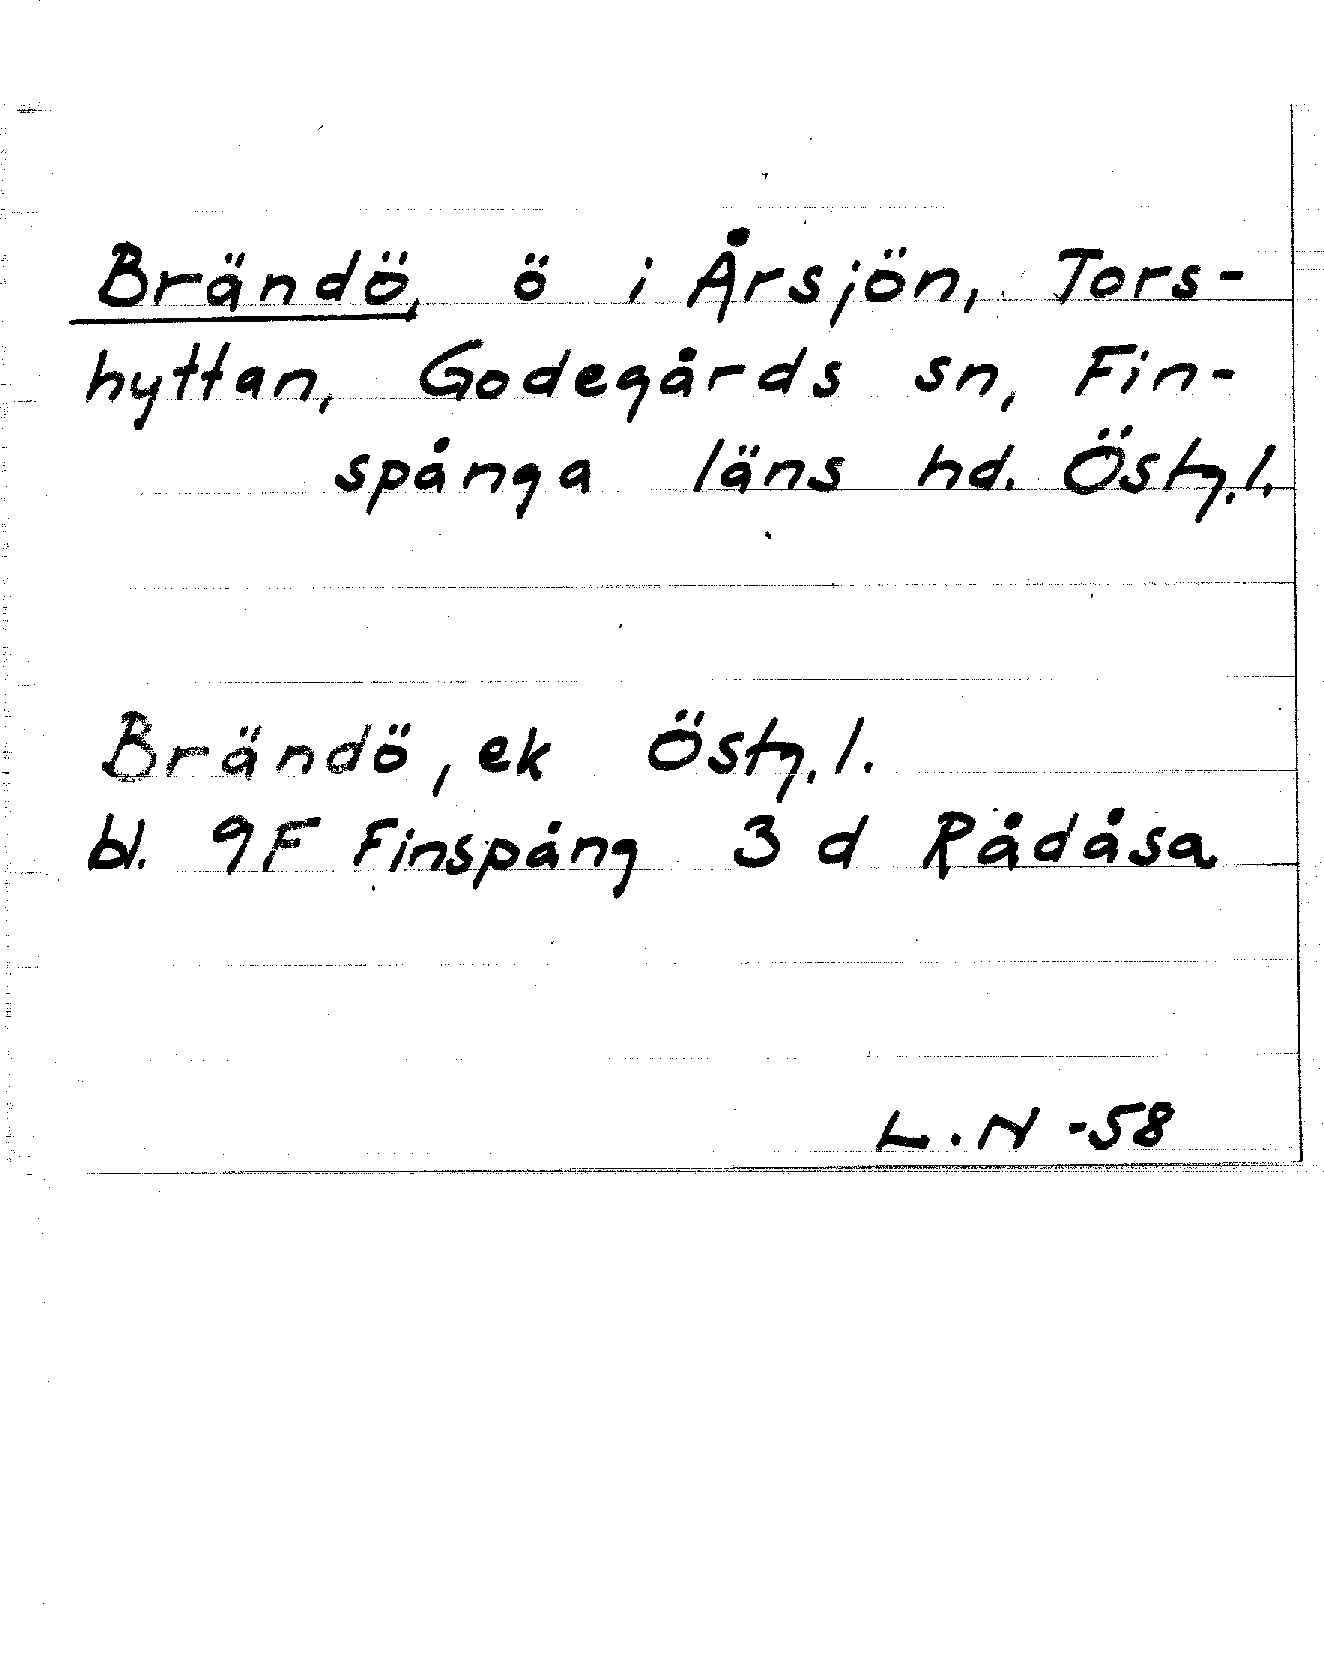 Brändö, ö i Årsjön, Tors-
hyttan, Godegårds sn, Fin-
spånga läns hd. Östg.l.
Brändö, ek Östg.l.
bl. 9F Finspång 3 d Rådåsa
L.N -58